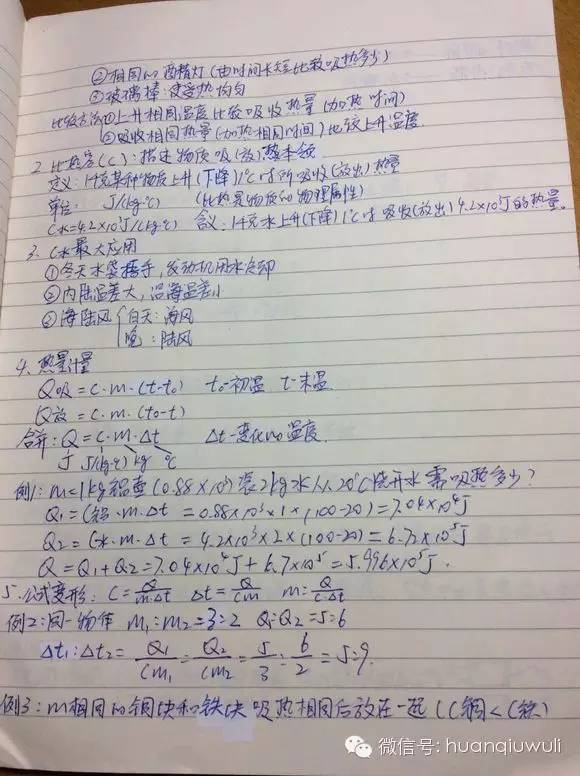 ②相同的酒精灯(由时间长短比较吸热多少)
③玻璃棒:使受热均匀
比较方法①上升相同温度比较吸收热量(加热时间)
②吸收相同热量(加热相同时间)比较上升温度
2. 比热容(C):描述物质吸(放)热本领
定义:1千克某种物质上升(下降)1℃时所吸收(放出)热量
单位: J/(kg·℃) (比热是物质的物理属性)
C水=4.2×10³J/(kg·℃) 含义:1千克水上升(下降)1℃时吸收(放出)4.2×10³J的热量。
3. C水最大应用
①冬天水袋捂手,发动机用水冷却
②内陆温差大,沿海温差小
③海陆风 白天:海风
晚:陆风
4、热量计量
Q吸=C·m·(t-t₀) t₀-初温 t-末温
Q放=C·m·(t₀-t)
合并:Q=C·m·Δt Δt-变化的温度
J J/(kg·℃) kg ℃
例1:m=1kg铝壶(0.88×10³)装2kg水从20℃烧开水需吸热多少?
Q₁=C铝·m·Δt=0.88×10³×1×(100-20)=7.04×10⁴J
Q₂=C水·m·Δt=4.2×10³×2×(100-20)=6.72×10⁵J
Q=Q₁+Q₂=7.04×10⁴J+6.7×10⁵=5.996×10⁵J.
5.公式变形: C=Q/m·Δt Δt=Q/Cm m=Q/C·Δt
例2:同一物体 m₁:m₂=3:2 Q₁:Q₂=5:6
Δt₁:Δt₂=Q₁/Cm₁:Q₂/Cm₂=5/3:6/2=5:9.
例3:m相同的铜块和铁块吸热相同后放在一起(C铜<C铁)
微信号: huanqiuwuli